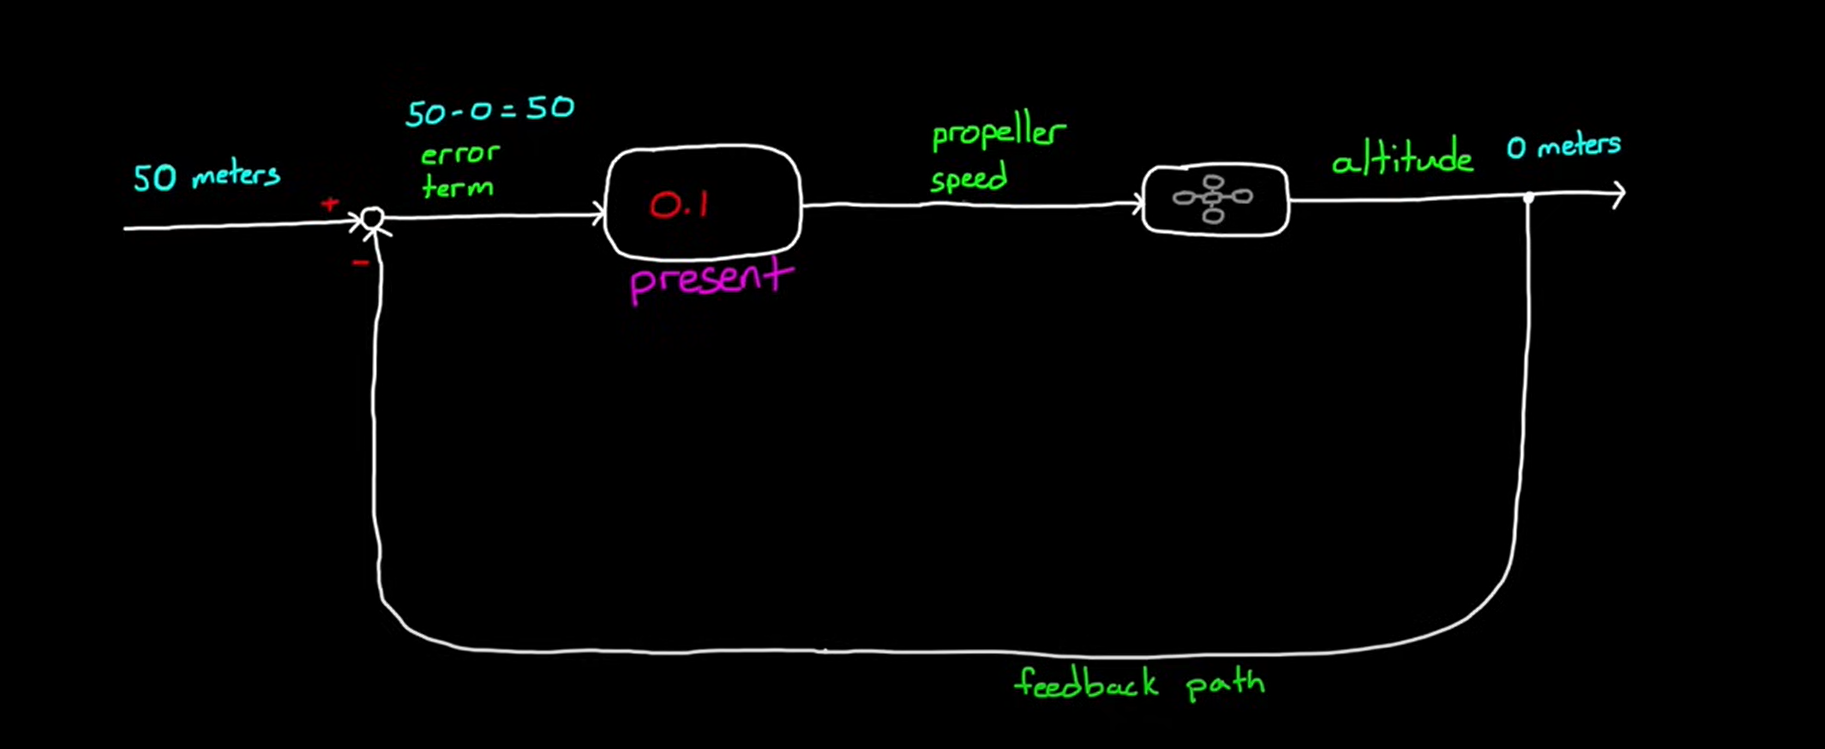 50 - 0 = 50
error
term
50 meters
+
-
0.1
present
propeller
speed
altitude
0 meters
feedback path